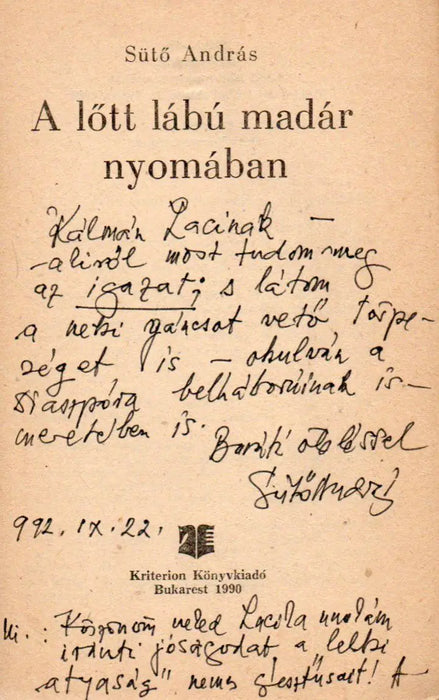 Sütő András
A lőtt lábú madár
nyomában
Kálmán Lacinak –
– akiről most tudom meg
az igazat; s látom
a neki gáncsot vető törpe-
séget is – okulván a
diaszpóra belháborúinak is-
meretében is.
Baráti öleléssel
Sütő András
992. IX. 22.
Kriterion Könyvkiadó
Bukarest 1990
Ui.: Köszönöm neked Lacila unokám
iránti jóságodat a "lelki
atyaság" nemes gesztusait! A